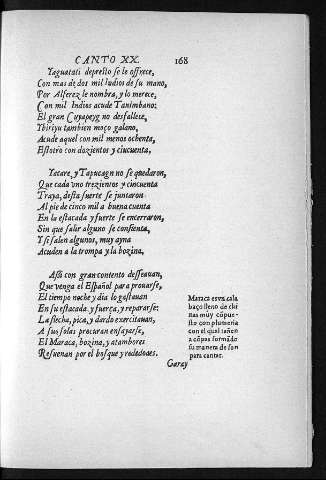 CANTO XX. 168
Yaguatati depresto se le offrece,
Con mas de dos mil Indios de su mano,
Por Alferez le nombra, y lo merece,
Con mil Indios acude Tanimbano:
El gran Cuyapeyg no desfallece,
Ybiriyu tambien moço galano,
Acude aquel con menos ochenta,
Estotro con dozientos y cincuenta.
Yacare, y Tapucagn no se quedaron,
Que cada vno trezientos y cincuenta
Traya, desta suerte se juntaron
Al pie de cinco mil a buena cuenta
En la estacada y fuerte se encerraron,
Sin que salir alguno se consienta,
Y si salen algunos, muy ayna
Acuden a la trompa y la bozina,
Assi con gran contento desseauan,
Que venga el Español para prouarse,
El tiempo noche y dia lo gastauan
En su estacada y fuerça, y repararse:
La flecha, pica, y dardo exercitauan,
A sus solas procuran ensayarse,
El Maraca, bozina, y atambores
Resuenan por el bosque y rededores.
Maraca es vn cala
baço lleno de chi
nas muy cōpue-
sto con plumeria
con el qual tañen
a cōpas formādo
su manera de son
para cantar.
Garay